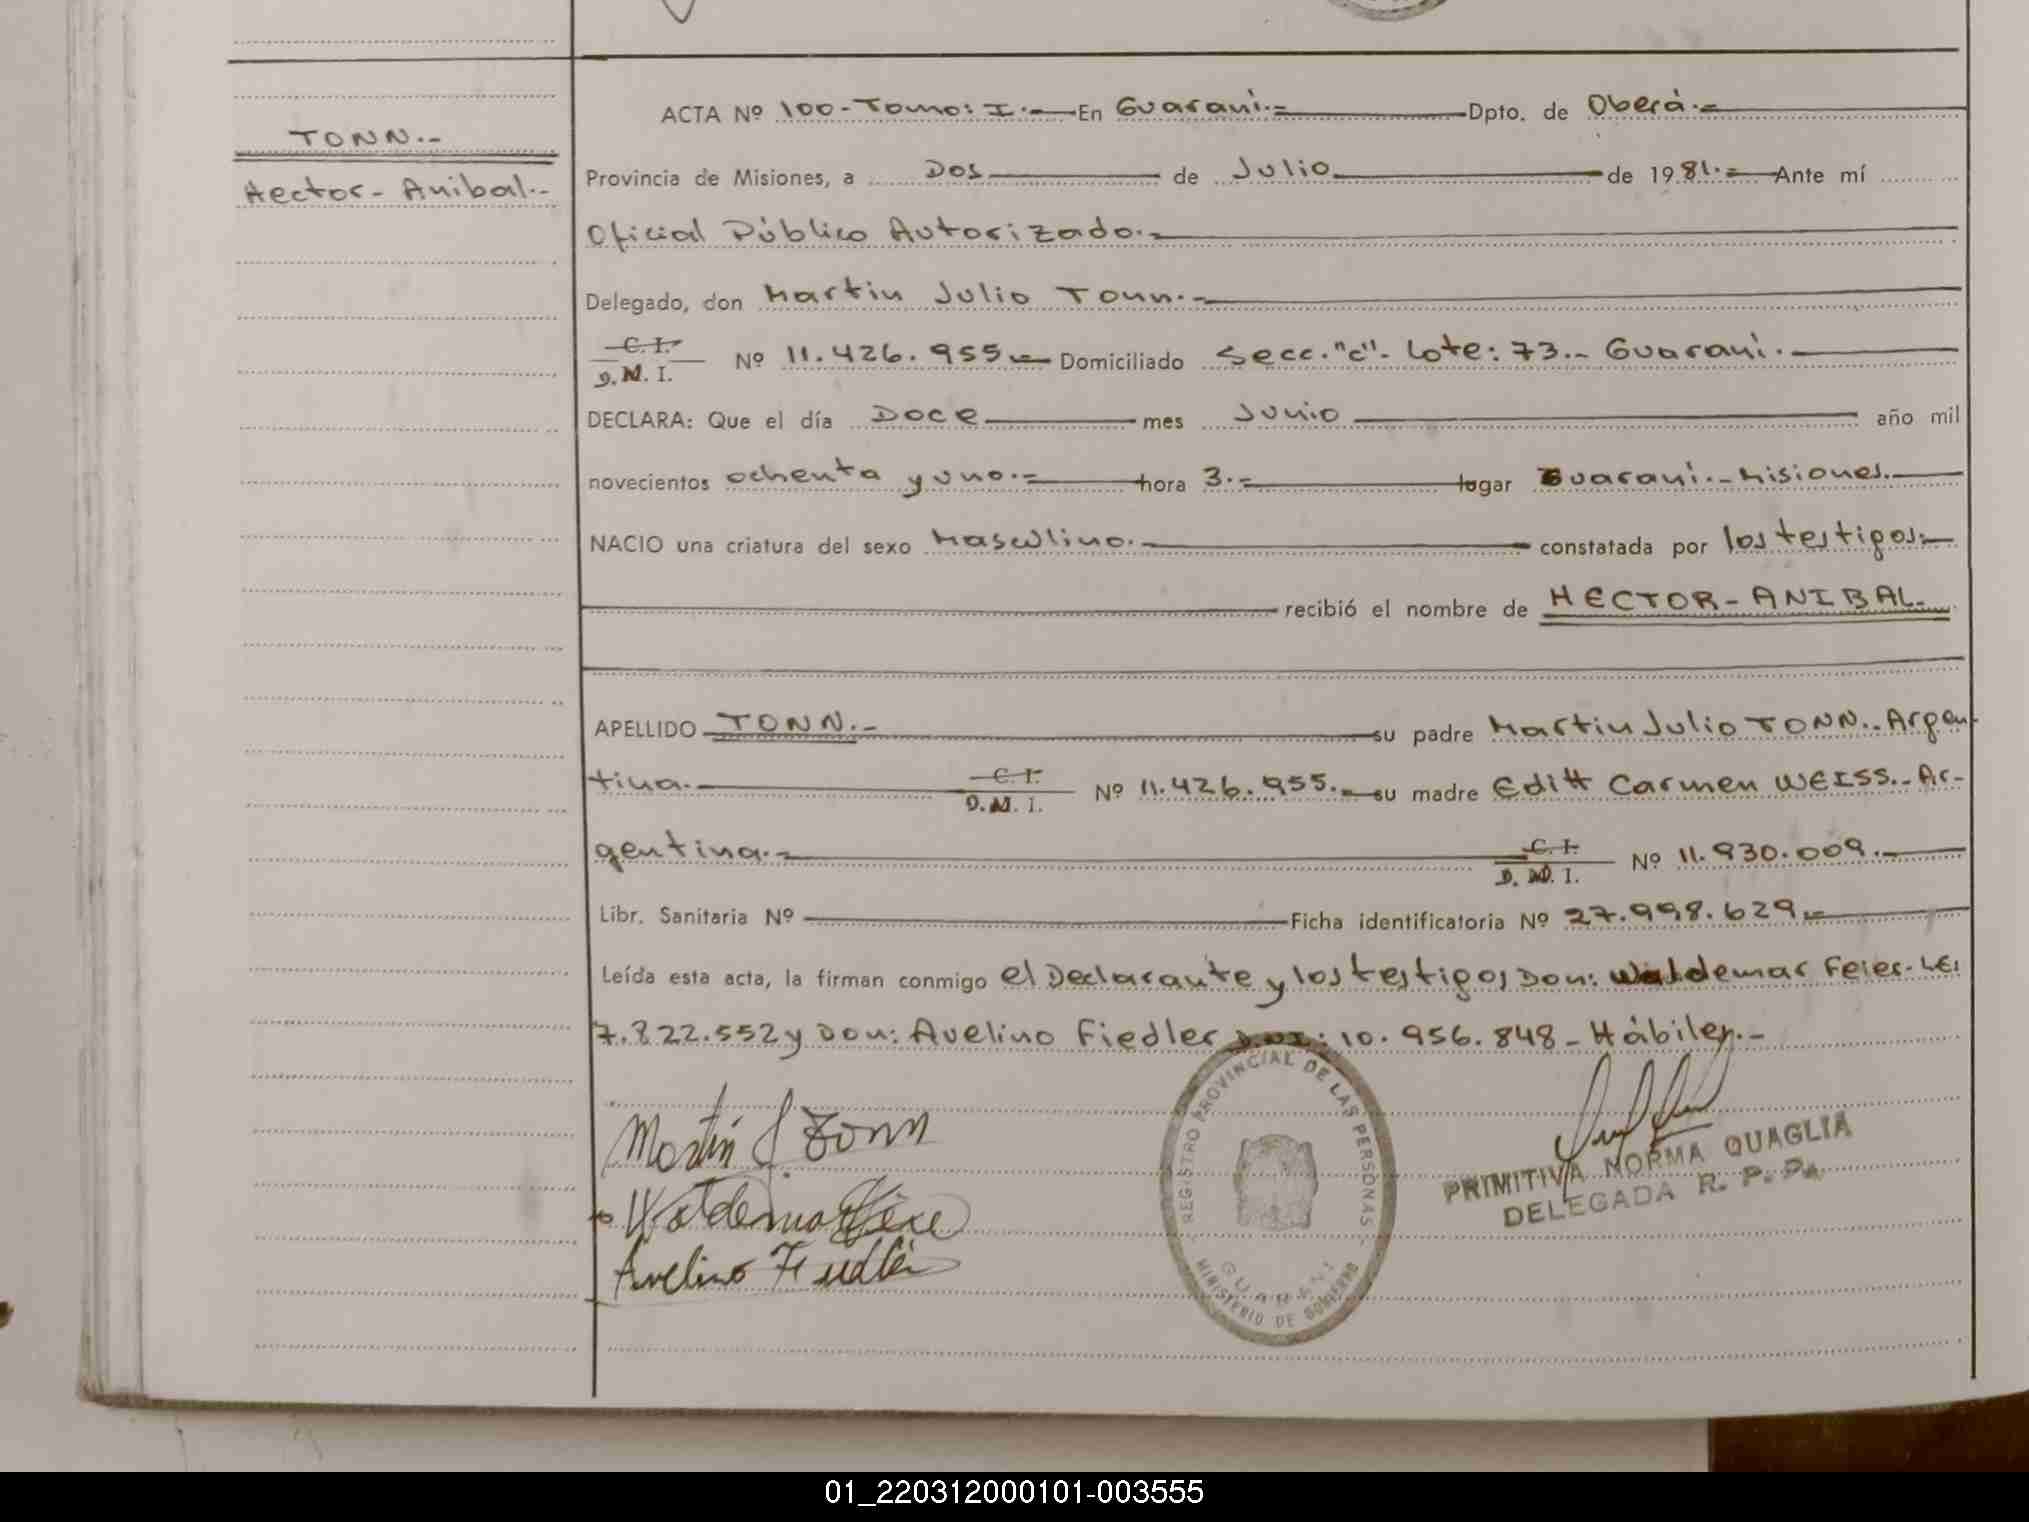 TONN.-
Hector - Anibal.-
ACTA Nº 100 - Tomo: I.- En Guaraní.- Dpto. de Oberá.-
Provincia de Misiones, a Dos de Julio de 1981.- Ante mí
Oficial Público Autorizado.-
Delegado, don Martin Julio Tonn.-
C. I.
D. N. I. Nº 11.426.955.- Domiciliado Secc. "c". Lote: 73.- Guaraní.-
DECLARA: Que el día Doce mes Junio año mil
novecientos ochenta y uno.- hora 3.- lugar Guaraní.- Misiones.
NACIO una criatura del sexo Masculino.- constatada por los testigos.-
recibió el nombre de HECTOR - ANIBAL.
APELLIDO TONN.- su padre Martin Julio TONN.. Argen-
C. I.
tina.- D. N. I. Nº 11.426.955.- su madre Editt Carmen WEISS.- Ar-
C. I.
gentina.- D. N. I. Nº 11.930.009.-
Libr. Sanitaria Nº Ficha identificatoria Nº 27.998.629.-
Leída esta acta, la firman conmigo el Declarante y los testigos Don: Waldemar Feier. LE:
7.822.552 y Don: Avelino Fiedler D.N.I: 10.956.848 - Hábiles.-
Martin J. Tonn
Waldemar
Avelino Fiedler
REGISTRO PROVINCIAL DE LAS PERSONAS
GUARANI
MINISTERIO DE GOBIERNO
PRIMITIVA NORMA QUAGLIA
DELEGADA R. P. P.
01_220312000101-003555